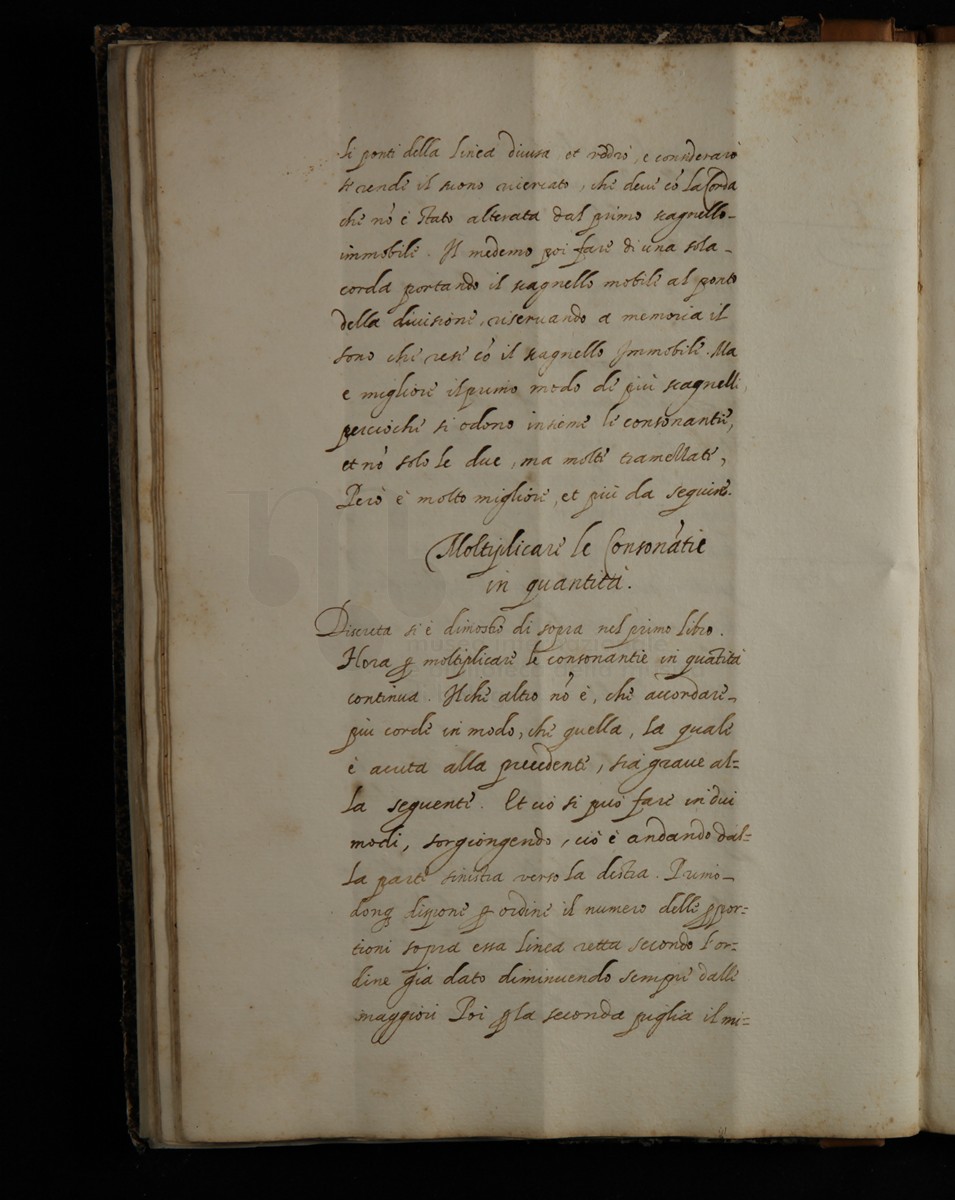 li ponti della linea diuisa, et vedrò, e considerarò
se rende il suono ricercato, che deue cō la Corda
che nō è stato alterata dal primo scagnello
immobile. Il medemo poi fare di una sola
corda portando il scagnello mobile al ponto
della diuisione, riseruando a memoria il
sono che rese cō il scagnello Immobile. Ma
e migliore il primo modo de più scagnelli,
percioche si odono insieme le consonantie,
et nō solo le due, ma molte tramellate,
Però è molto migliore, et più da seguire.
Moltiplicare le Consonātie
in quantità.
Discreta si è dimostrō di sopra nel primo libro.
Hora ꝑ moltiplicare le consonantie in quātità
continua. Il che altro nō è, che accordare
più corde in modo, che quella, la quale
è acuta alla precedente, sia graue al=
la seguente. Et ciò si può fare in dui
modi, sorgiongendo, ciò è andando dal=
la parte sinistra verso la destra. Primo
donqꝫ dispone ꝑ ordine il numero delle ꝓpor=
tioni sopra essa linea retta secondo l'or=
dine già dato diminuendo sempre dalle
maggiori Poi ꝑ la seconda piglia il mi=